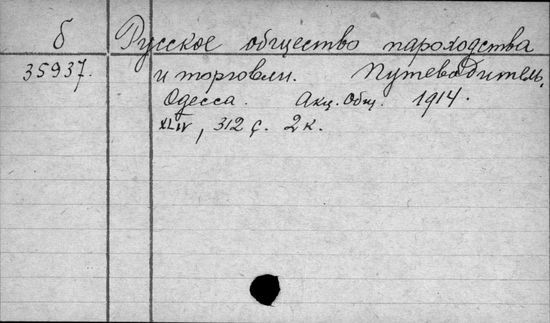 б Русское общество пароходства
35937. и торговли. Путеводитель,
Одесса. Акц. Общ. 1914.
XLIV, 312 с. 2 к.